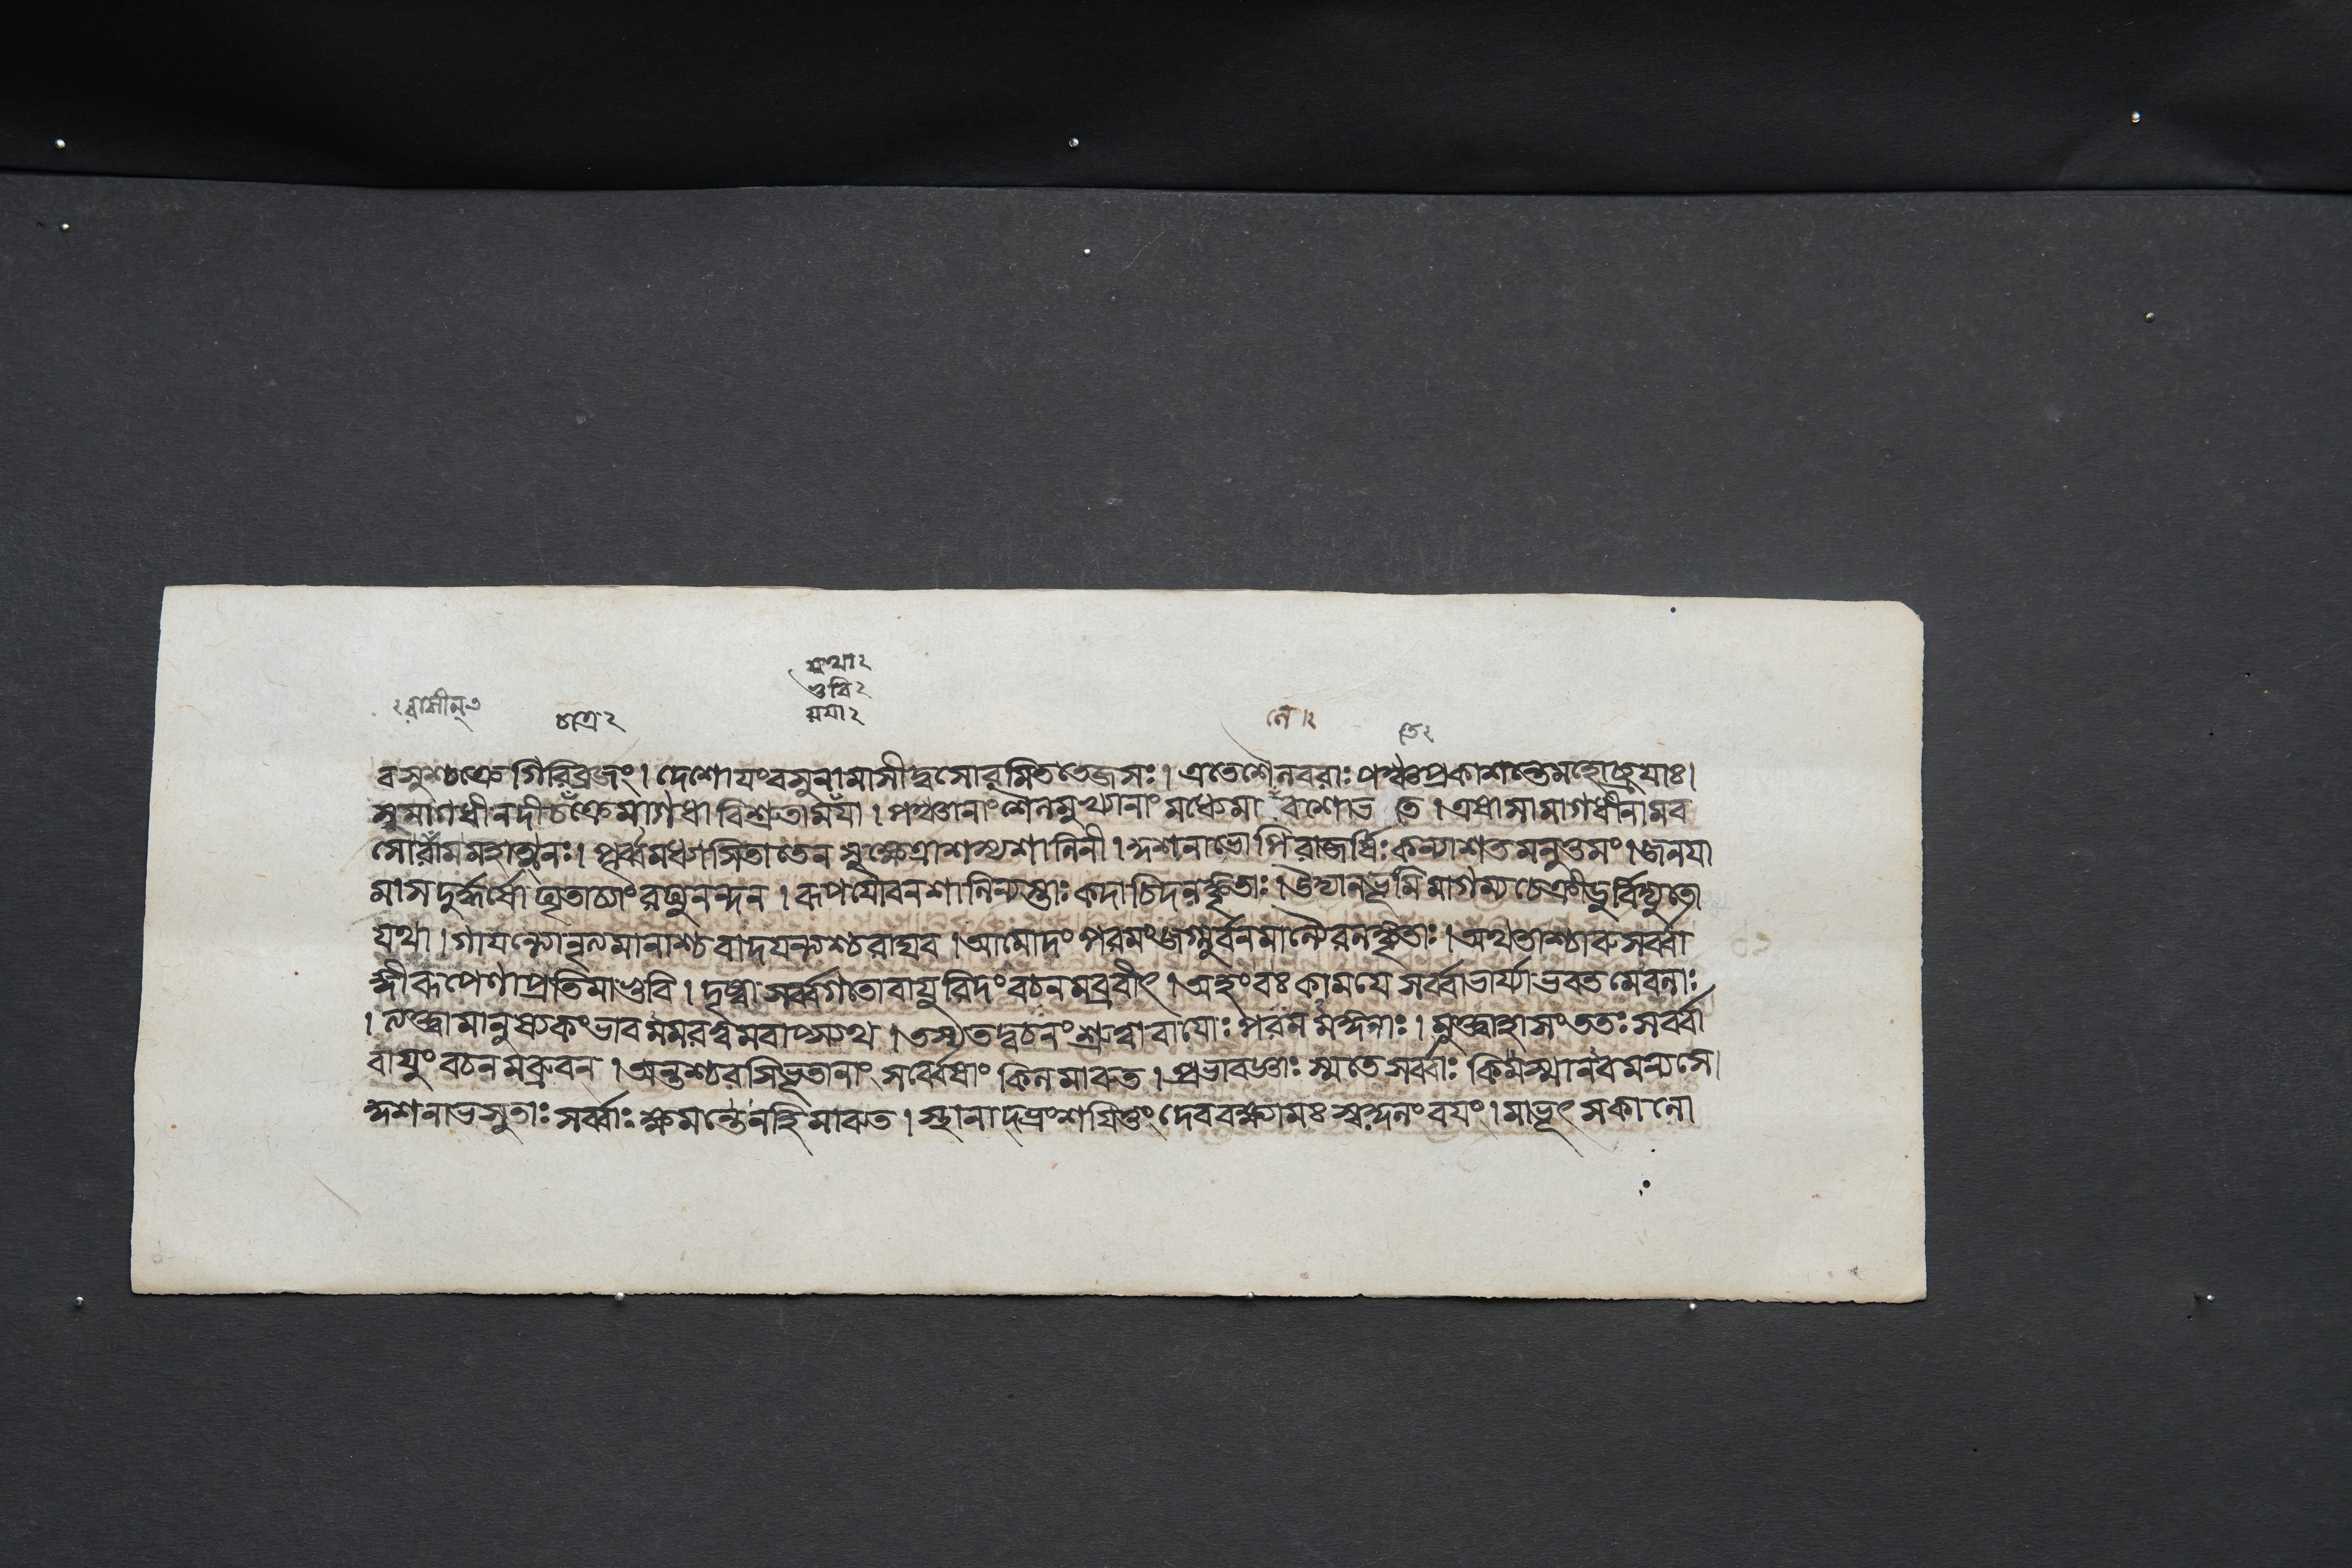 শ্রুতা২
ভুবি২
ময়া২
২রাসীন্
চাত্রে২
নে।২
তে২
বসুশ্চক্রে গিরিব্রজং। দেশোযংবসুনামাসীদ্বসোরমিততেজসঃ। এতেশৈলবরাঃ পঞ্চপ্রকাশন্তেমহোচ্ছ্রয়াঃ।
সুমাগধীনদীচক্রেমাগধাবিশ্রুতাময়া। পঞ্চানাংশৈলমুখ্যানাং মধ্যেমালেবশোভ তে। এষাসামাগধীনামব
সোরামমহাত্মনঃ। পূর্ব্বমধ্যাসিতাতেন সুক্ষেত্রাশস্যশালিনী। কুশনাভোপিরাজর্ষিঃ কন্যাশতমনুত্তমং। জনযা
মাসদুর্দ্ধর্ষো ঘৃতাচ্যাংরঘুনন্দন। রূপযৌবনশালিন্যস্তাঃ কদাচিদলঙ্কৃতাঃ। উদ্যানভূমিমাগম্য চেক্রীডুর্বিদ্যুতো
যথা। গাযন্ত্যোনৃত্যমানাশ্চবাদযন্ত্যশ্চরাঘব। আমোদং পরমংজগ্মুর্বনমাল্যৈরলঙ্কৃতাঃ। অথতাশ্চারুসর্ব্বা
ঙ্গীরূপেণাপ্রতিমাভুবি। দৃষ্ট্বা সর্ব্বগতোবাযুরিদংবচনমব্রবীৎ। অহংবঃ কাময়ে সর্ব্বাভার্য্যাভবতমেবলাঃ
। ত্যক্ত্বামানুষ্যকংভাবমমরত্বমবাপ্স্যথ। তস্যতদ্বচনংশ্রুত্বাবাযোঃ পরমমঙ্গনাঃ। মুক্ত্বাহাসংততঃ সর্ব্বা
বাযুং বচনমব্রুবন। অন্তশ্চরসিভূতানাং সর্ব্বেষাং কিলমারুত। প্রভাবজ্ঞাঃ স্মতেসর্ব্বাঃ কিমস্মানবমন্যসে।
কুশনাভসুতাঃ সর্ব্বাঃ ক্ষমন্তেনহিমারুত। স্থানাদ্ভ্রংশযিতুং দেবরক্ষ্যামঃ স্বকুলং বযং। মাভূৎ সকালো